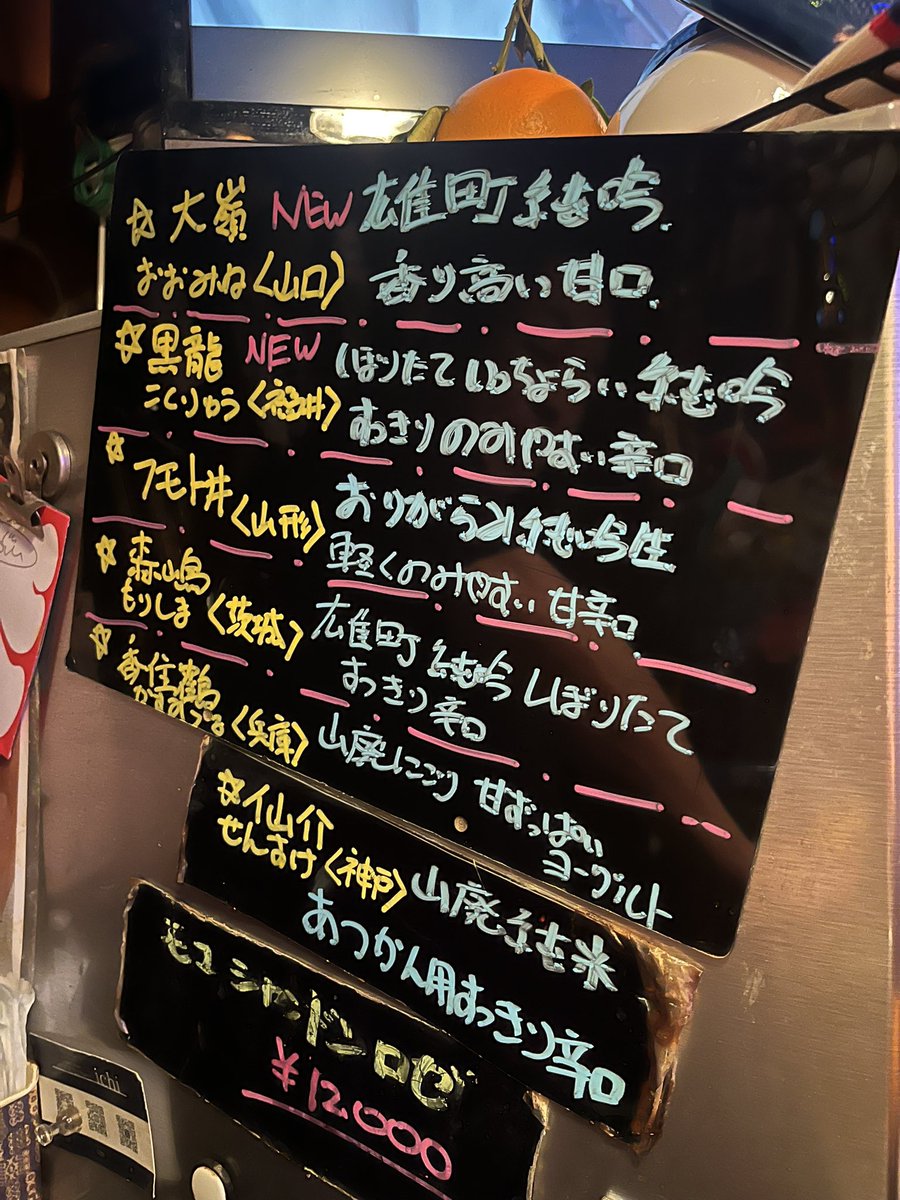 ☆大嶺 NEW 雄町純吟
おおみね〈山口〉 香り高い甘口
☆黒龍 NEW しぼりたていちょらい純吟
こくりゅう〈福井〉 すっきりのみやすい辛口
☆フモト井〈山形〉 おりがらみ純吟生
軽くのみやすい甘辛口
☆森嶋 雄町 純吟 しぼりたて
もりしま〈茨城〉 すっきり辛口
☆香住鶴 山廃にごり 甘ずっぱい
かすみつる〈兵庫〉 ヨーグルト
☆仙介 山廃純米
せんすけ〈神戸〉 あつかん用すっきり辛口
モエシャンドンロゼ
¥12000
ichi